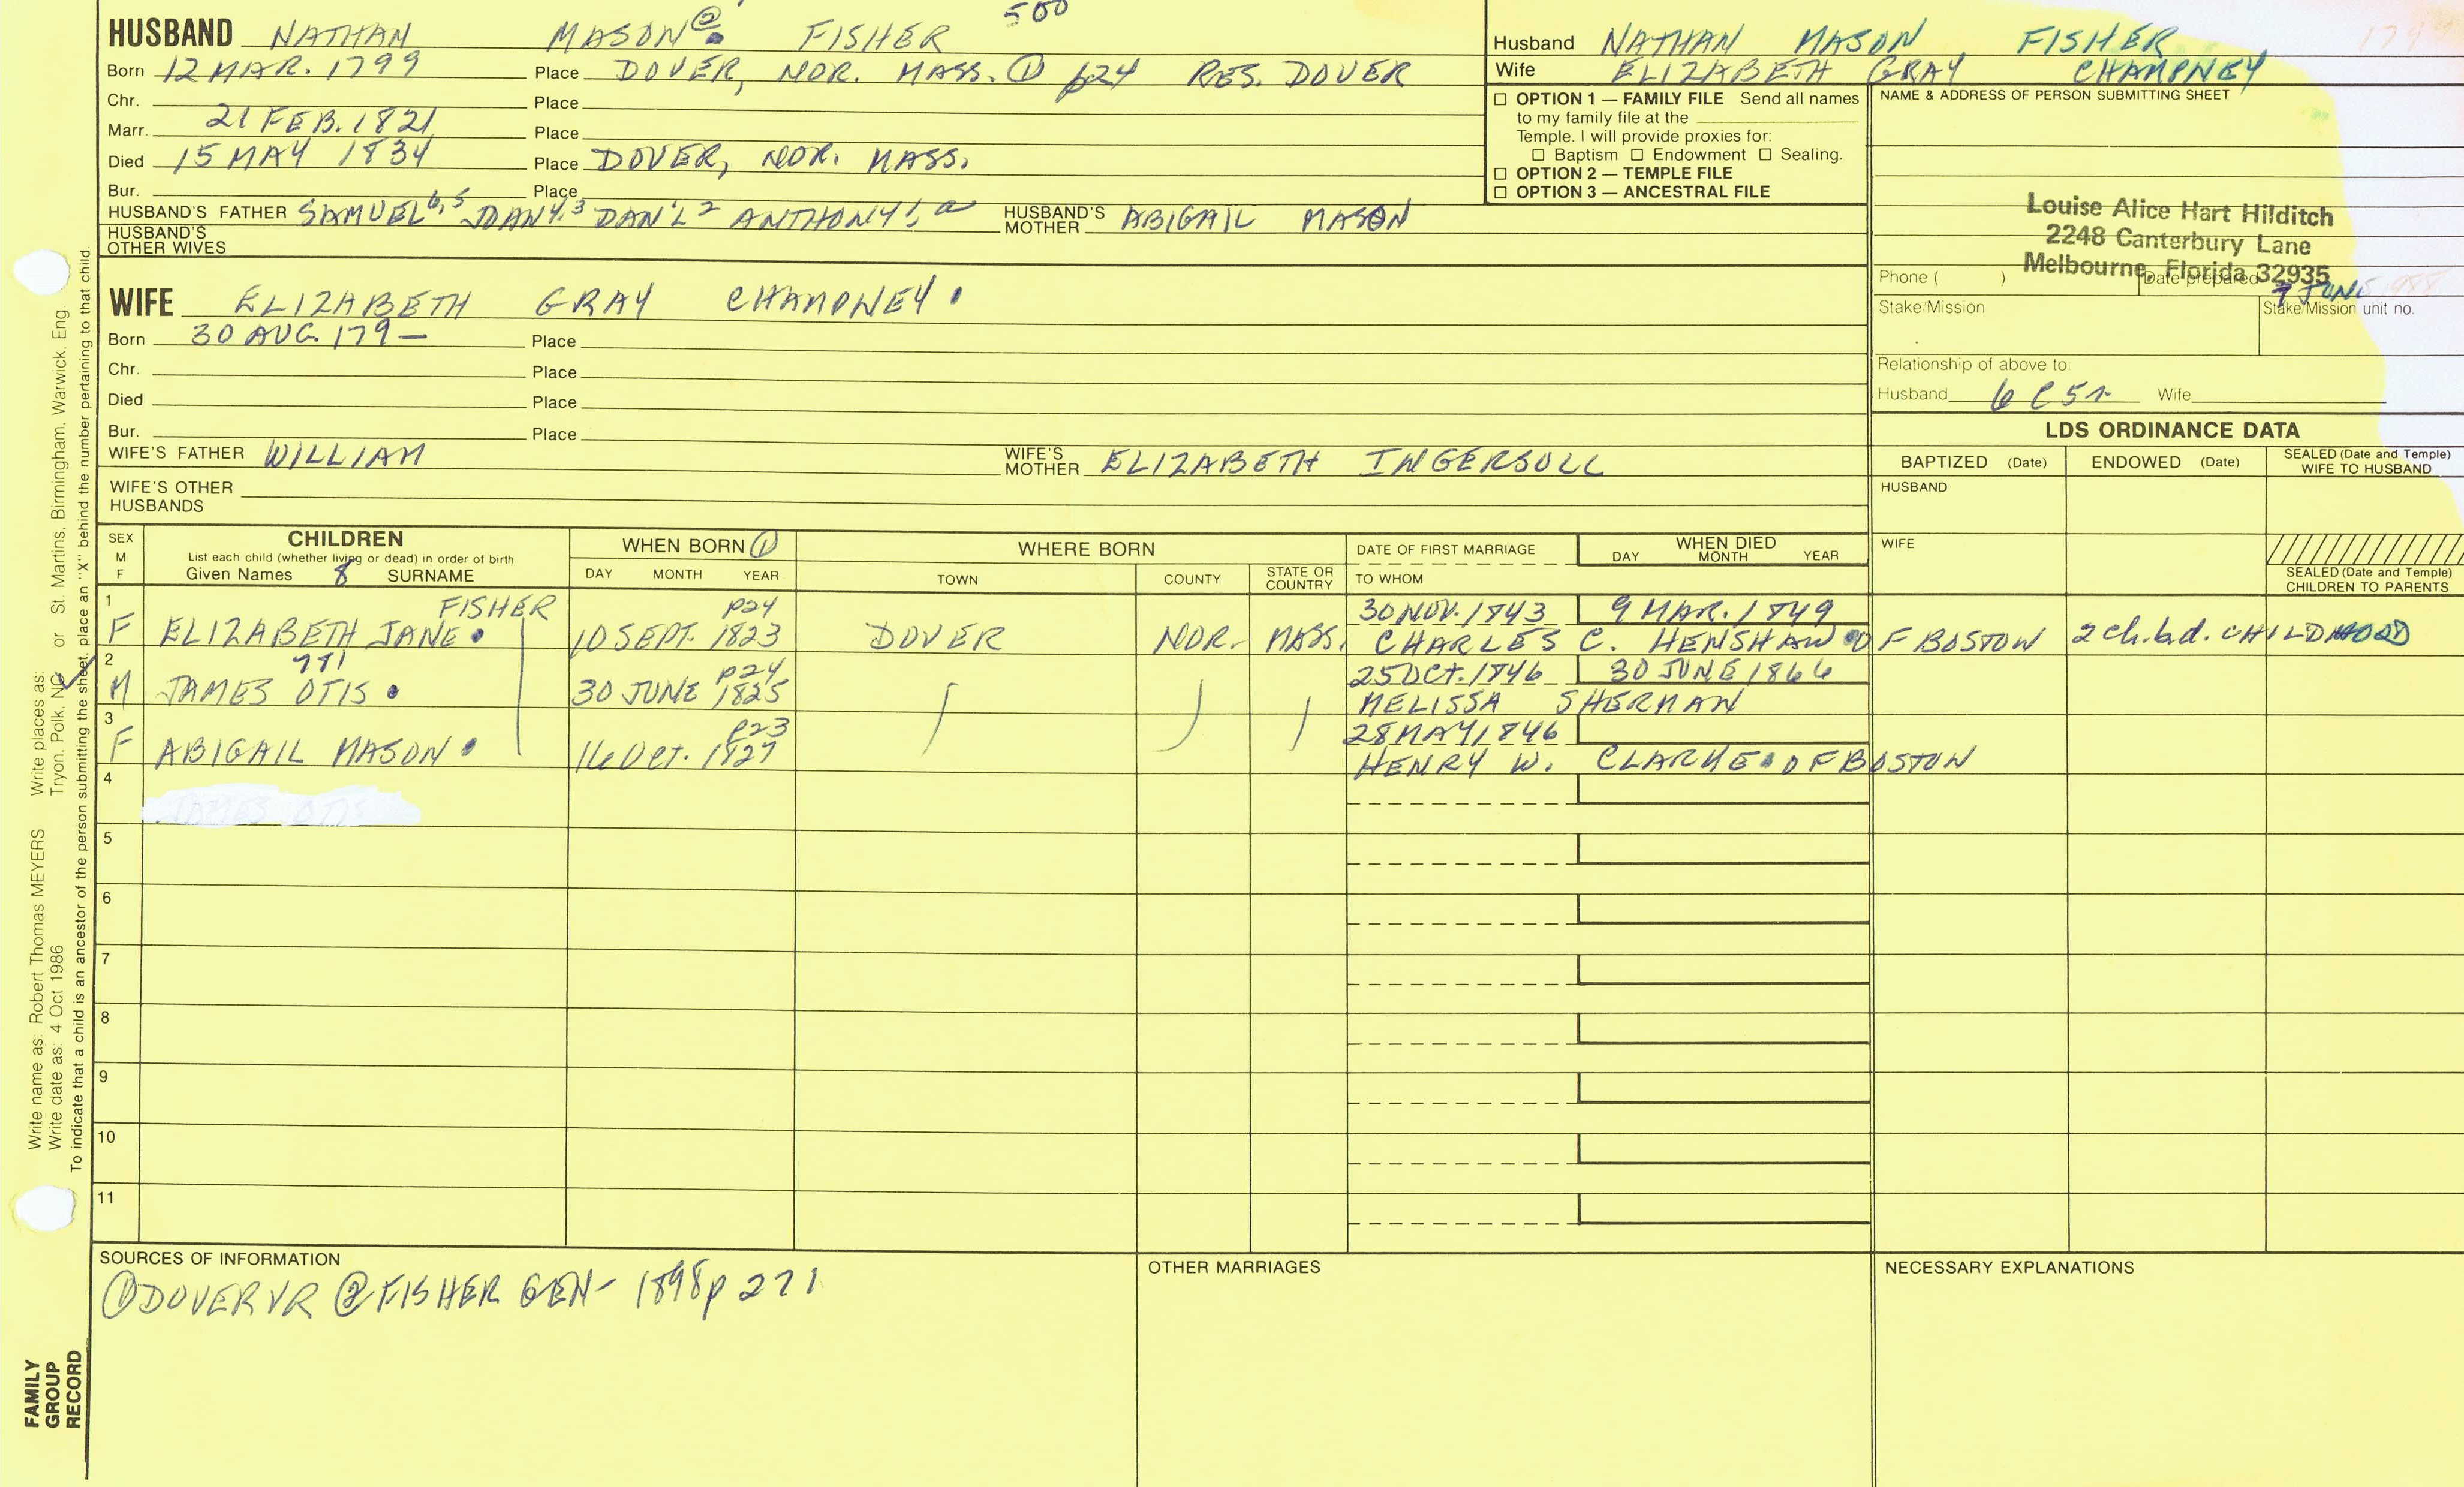 500
HUSBAND NATHAN MASON ② FISHER
Born 12 MAR. 1799 Place DOVER, NOR. MASS. ① p24 RES. DOVER
Chr. Place
Marr. 21 FEB. 1821 Place
Died 15 MAY 1834 Place DOVER, NOR. MASS.
Bur. Place
HUSBAND'S FATHER SAMUEL 6,5 3 DAN'L 2 ANTHONY 1, HUSBAND'S MOTHER ABIGAIL MASON
HUSBAND'S OTHER WIVES
WIFE ELIZABETH GRAY CHAMPNEY
Born 30 AUG. 179— Place
Chr. Place
Died Place
Bur. Place
WIFE'S FATHER WILLIAM WIFE'S MOTHER ELIZABETH INGERSOLL
WIFE'S OTHER HUSBANDS
Husband NATHAN MASON, FISHER
Wife ELIZABETH GRAY CHAMPNEY
☐ OPTION 1 — FAMILY FILE Send all names
to my family file at the
Temple. I will provide proxies for:
☐ Baptism ☐ Endowment ☐ Sealing.
☐ OPTION 2 — TEMPLE FILE
☐ OPTION 3 — ANCESTRAL FILE
NAME & ADDRESS OF PERSON SUBMITTING SHEET
Louise Alice Hart Hilditch
2248 Canterbury Lane
Melbourne, Florida 32935
Phone ( ) Date prepared 7 JUNE 1988
Stake/Mission Stake/Mission unit no.
Relationship of above to:
Husband 6 C 5 r Wife
LDS ORDINANCE DATA
BAPTIZED (Date) ENDOWED (Date) SEALED (Date and Temple) WIFE TO HUSBAND
HUSBAND
WIFE
SEALED (Date and Temple) CHILDREN TO PARENTS
SEX M F
CHILDREN
List each child (whether living or dead) in order of birth
Given Names 8 SURNAME
WHEN BORN ①
DAY MONTH YEAR
WHERE BORN
TOWN COUNTY STATE OR COUNTRY
DATE OF FIRST MARRIAGE
TO WHOM
WHEN DIED
DAY MONTH YEAR
1 FISHER p24 30 NOV. 1843 9 MAR. 1849
F ELIZABETH JANE 10 SEPT. 1823 DOVER NOR. MASS. CHARLES C. HENSHAW OF BOSTON 2 ch. b.d. CHILDHOOD
2 p24 25 OCT. 1846 30 JUNE 1866
M JAMES OTIS 30 JUNE 1825 MELISSA SHERMAN
3 p23 28 MAY 1846
F ABIGAIL MASON 16 Oct. 1827 HENRY W. CLARKE OF BOSTON
4
JAMES OTIS
5
6
7
8
9
10
11
SOURCES OF INFORMATION
① DOVER VR ② FISHER GEN- 1898 p 271
OTHER MARRIAGES
NECESSARY EXPLANATIONS
Write name as: Robert Thomas MEYERS Write places as: Tryon, Polk, NC or St. Martins, Birmingham, Warwick, Eng
Write date as: 4 Oct 1986
To indicate that a child is an ancestor of the person submitting the sheet, place an "X" behind the number pertaining to that child.
FAMILY
GROUP
RECORD